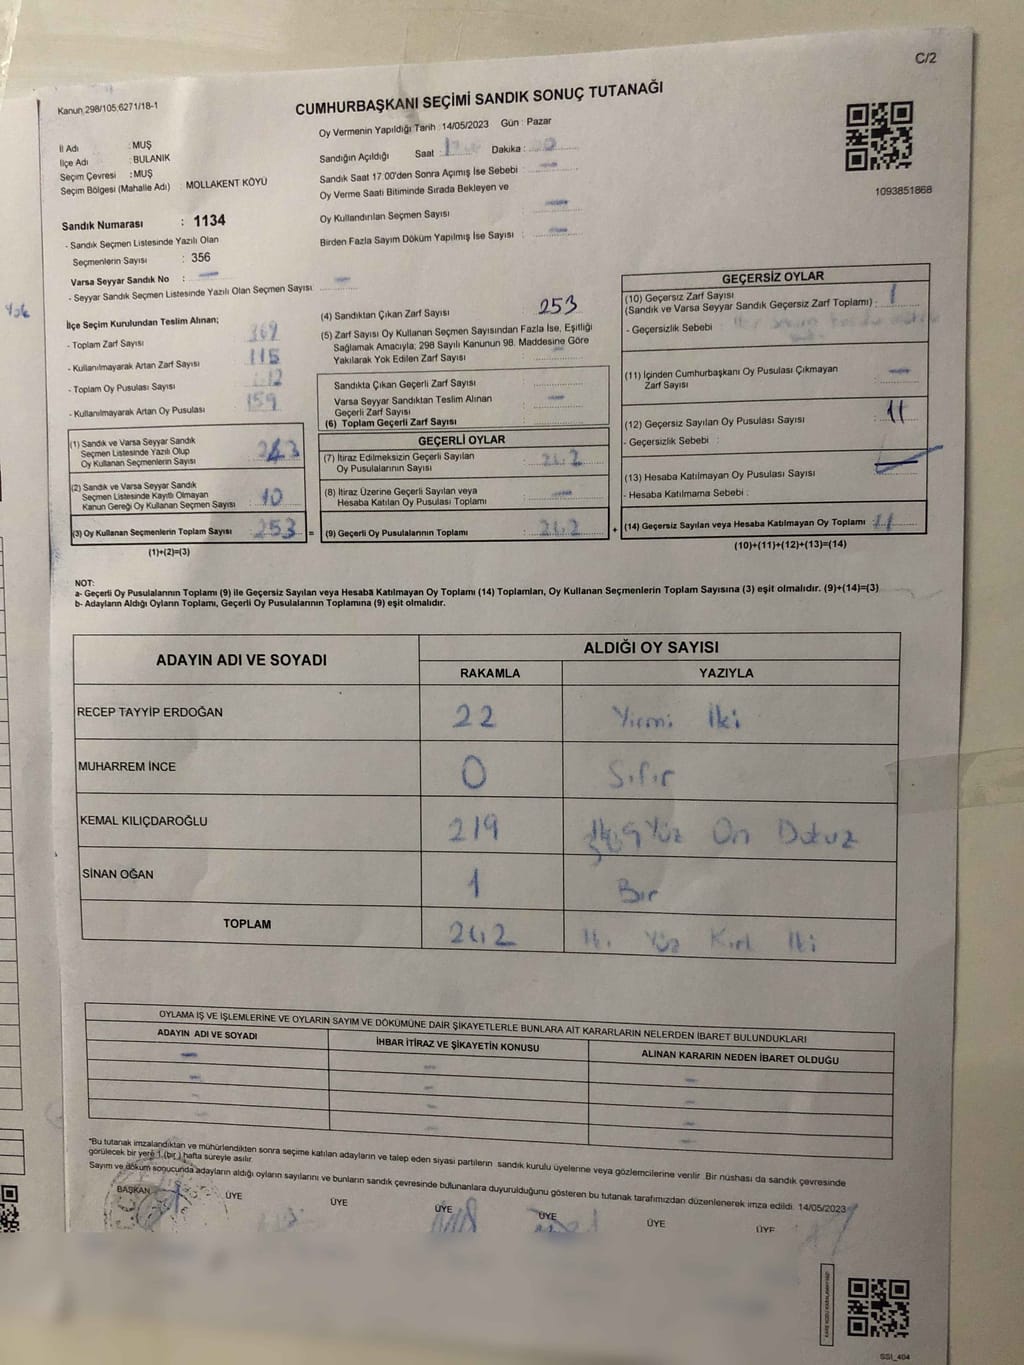 C/2
Kanun 298/105;6271/18-1
CUMHURBAŞKANI SEÇİMİ SANDIK SONUÇ TUTANAĞI
Oy Vermenin Yapıldığı Tarih :14/05/2023 Gün : Pazar
İl Adı : MUŞ
İlçe Adı : BULANIK
Seçim Çevresi : MUŞ
Seçim Bölgesi (Mahalle Adı) : MOLLAKENT KÖYÜ
Sandığın Açıldığı Saat : Dakika :
Sandık Saat 17 00'den Sonra Açımış İse Sebebi :
Oy Verme Saati Bitiminde Sırada Bekleyen ve
Oy Kullandırılan Seçmen Sayısı :
Birden Fazla Sayım Döküm Yapılmış İse Sayısı :
1093851868
Sandık Numarası : 1134
- Sandık Seçmen Listesinde Yazılı Olan
Seçmenlerin Sayısı : 356
Varsa Seyyar Sandık No :
- Seyyar Sandık Seçmen Listesinde Yazılı Olan Seçmen Sayısı :
Yok
İlçe Seçim Kurulundan Teslim Alınan;
- Toplam Zarf Sayısı : 369
- Kullanılmayarak Artan Zarf Sayısı : 115
- Toplam Oy Pusulası Sayısı :
- Kullanılmayarak Artan Oy Pusulası : 159
(1) Sandık ve Varsa Seyyar Sandık
Seçmen Listesinde Yazılı Olup
Oy Kullanan Seçmenlerin Sayısı : 243
(2) Sandık ve Varsa Seyyar Sandık
Seçmen Listesinde Kayıtlı Olmayan
Kanun Gereği Oy Kullanan Seçmen Sayısı : 10
(3) Oy Kullanan Seçmenlerin Toplam Sayısı : 253 =
(1)+(2)=(3)
(4) Sandıktan Çıkan Zarf Sayısı : 253
(5) Zarf Sayısı Oy Kullanan Seçmen Sayısından Fazla İse, Eşitliği
Sağlamak Amacıyla; 298 Sayılı Kanunun 98. Maddesine Göre
Yakılarak Yok Edilen Zarf Sayısı :
Sandıkta Çıkan Geçerli Zarf Sayısı :
Varsa Seyyar Sandıktan Teslim Alınan
Geçerli Zarf Sayısı :
(6) Toplam Geçerli Zarf Sayısı :
GEÇERLİ OYLAR
(7) İtiraz Edilmeksizin Geçerli Sayılan
Oy Pusulalarının Sayısı : 242
(8) İtiraz Üzerine Geçerli Sayılan veya
Hesaba Katılan Oy Pusulası Toplamı :
(9) Geçerli Oy Pusulalarının Toplamı : 242 +
GEÇERSİZ OYLAR
(10) Geçersiz Zarf Sayısı
(Sandık ve Varsa Seyyar Sandık Geçersiz Zarf Toplamı) :
- Geçersizlik Sebebi :
(11) İçinden Cumhurbaşkanı Oy Pusulası Çıkmayan
Zarf Sayısı :
(12) Geçersiz Sayılan Oy Pusulası Sayısı : 11
- Geçersizlik Sebebi :
(13) Hesaba Katılmayan Oy Pusulası Sayısı :
- Hesaba Katılmama Sebebi :
(14) Geçersiz Sayılan veya Hesaba Katılmayan Oy Toplamı : 11
(10)+(11)+(12)+(13)=(14)
NOT:
a- Geçerli Oy Pusulalarının Toplamı (9) ile Geçersiz Sayılan veya Hesaba Katılmayan Oy Toplamı (14) Toplamları, Oy Kullanan Seçmenlerin Toplam Sayısına (3) eşit olmalıdır. (9)+(14)=(3)
b- Adayların Aldığı Oyların Toplamı, Geçerli Oy Pusulalarının Toplamına (9) eşit olmalıdır.
ADAYIN ADI VE SOYADI
ALDIĞI OY SAYISI
RAKAMLA YAZIYLA
RECEP TAYYİP ERDOĞAN 22 Yirmi İki
MUHARREM İNCE 0 Sıfır
KEMAL KILIÇDAROĞLU 219 Yüz On Dokuz
SİNAN OĞAN 1 Bir
TOPLAM 242 İki Yüz Kırk İki
OYLAMA İŞ VE İŞLEMLERİNE VE OYLARIN SAYIM VE DÖKÜMÜNE DAİR ŞİKAYETLERLE BUNLARA AİT KARARLARIN NELERDEN İBARET BULUNDUKLARI
ADAYIN ADI VE SOYADI İHBAR İTİRAZ VE ŞİKAYETİN KONUSU ALINAN KARARIN NEDEN İBARET OLDUĞU
*Bu tutanak imzalandıktan ve mühürlendikten sonra seçime katılan adayların ve talep eden siyasi partilerin sandık kurulu üyelerine veya gözlemcilerine verilir. Bir nüshası da sandık çevresinde
görülecek bir yere 1 (bir ) hafta süreyle asılır.
Sayım ve döküm sonucunda adayların aldığı oyların sayılarını ve bunların sandık çevresinde bulunanlara duyurulduğunu gösteren bu tutanak tarafımızdan düzenlenerek imza edildi. 14/05/2023
BAŞKAN ÜYE ÜYE ÜYE ÜYE ÜYE ÜYE
SSI_404